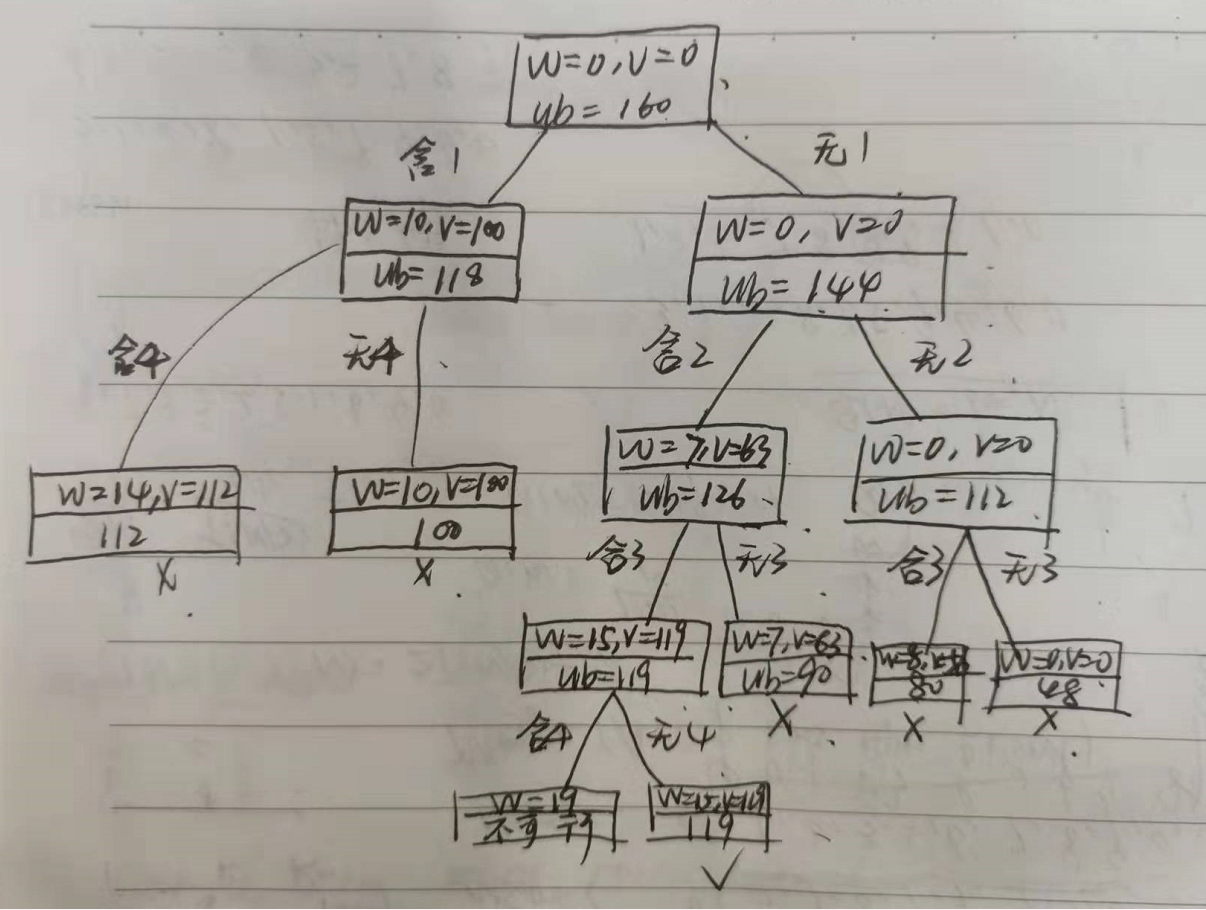 W=0, V=0
ub=160
含1
无1
W=10, V=100
ub=118
W=0, V=0
ub=144
含4
无4
含2
无2
W=14, V=112
112
X
W=10, V=100
100
X
W=7, V=63
ub=126
W=0, V=0
ub=112
含3
无3
含3
无3
W=15, V=119
ub=119
W=7, V=63
ub=90
X
W=8,
80
X
W=0, V=0
48
X
含4
无4
W=19
不可行
W=15, V=119
119
✓